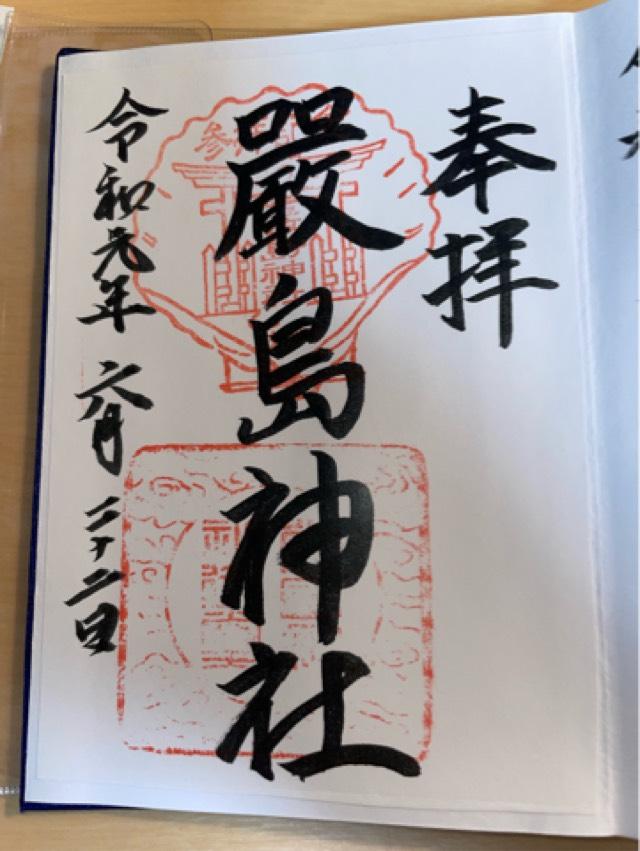 奉拝
嚴島神社
令和元年 六月 二十二日